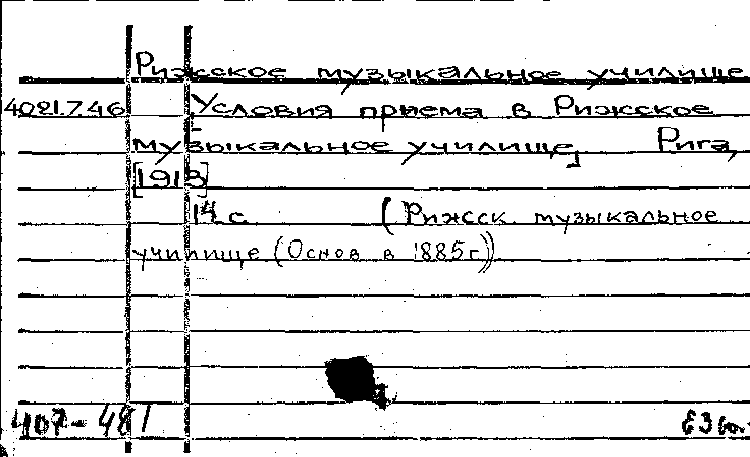 Рижское музыкальное училище
4021.7.46 [Условия приема в Рижское
музыкальное училище] Рига,
[1913]
14 с. (Рижск. музыкальное
училище (Основ в 1885 г))
407-481